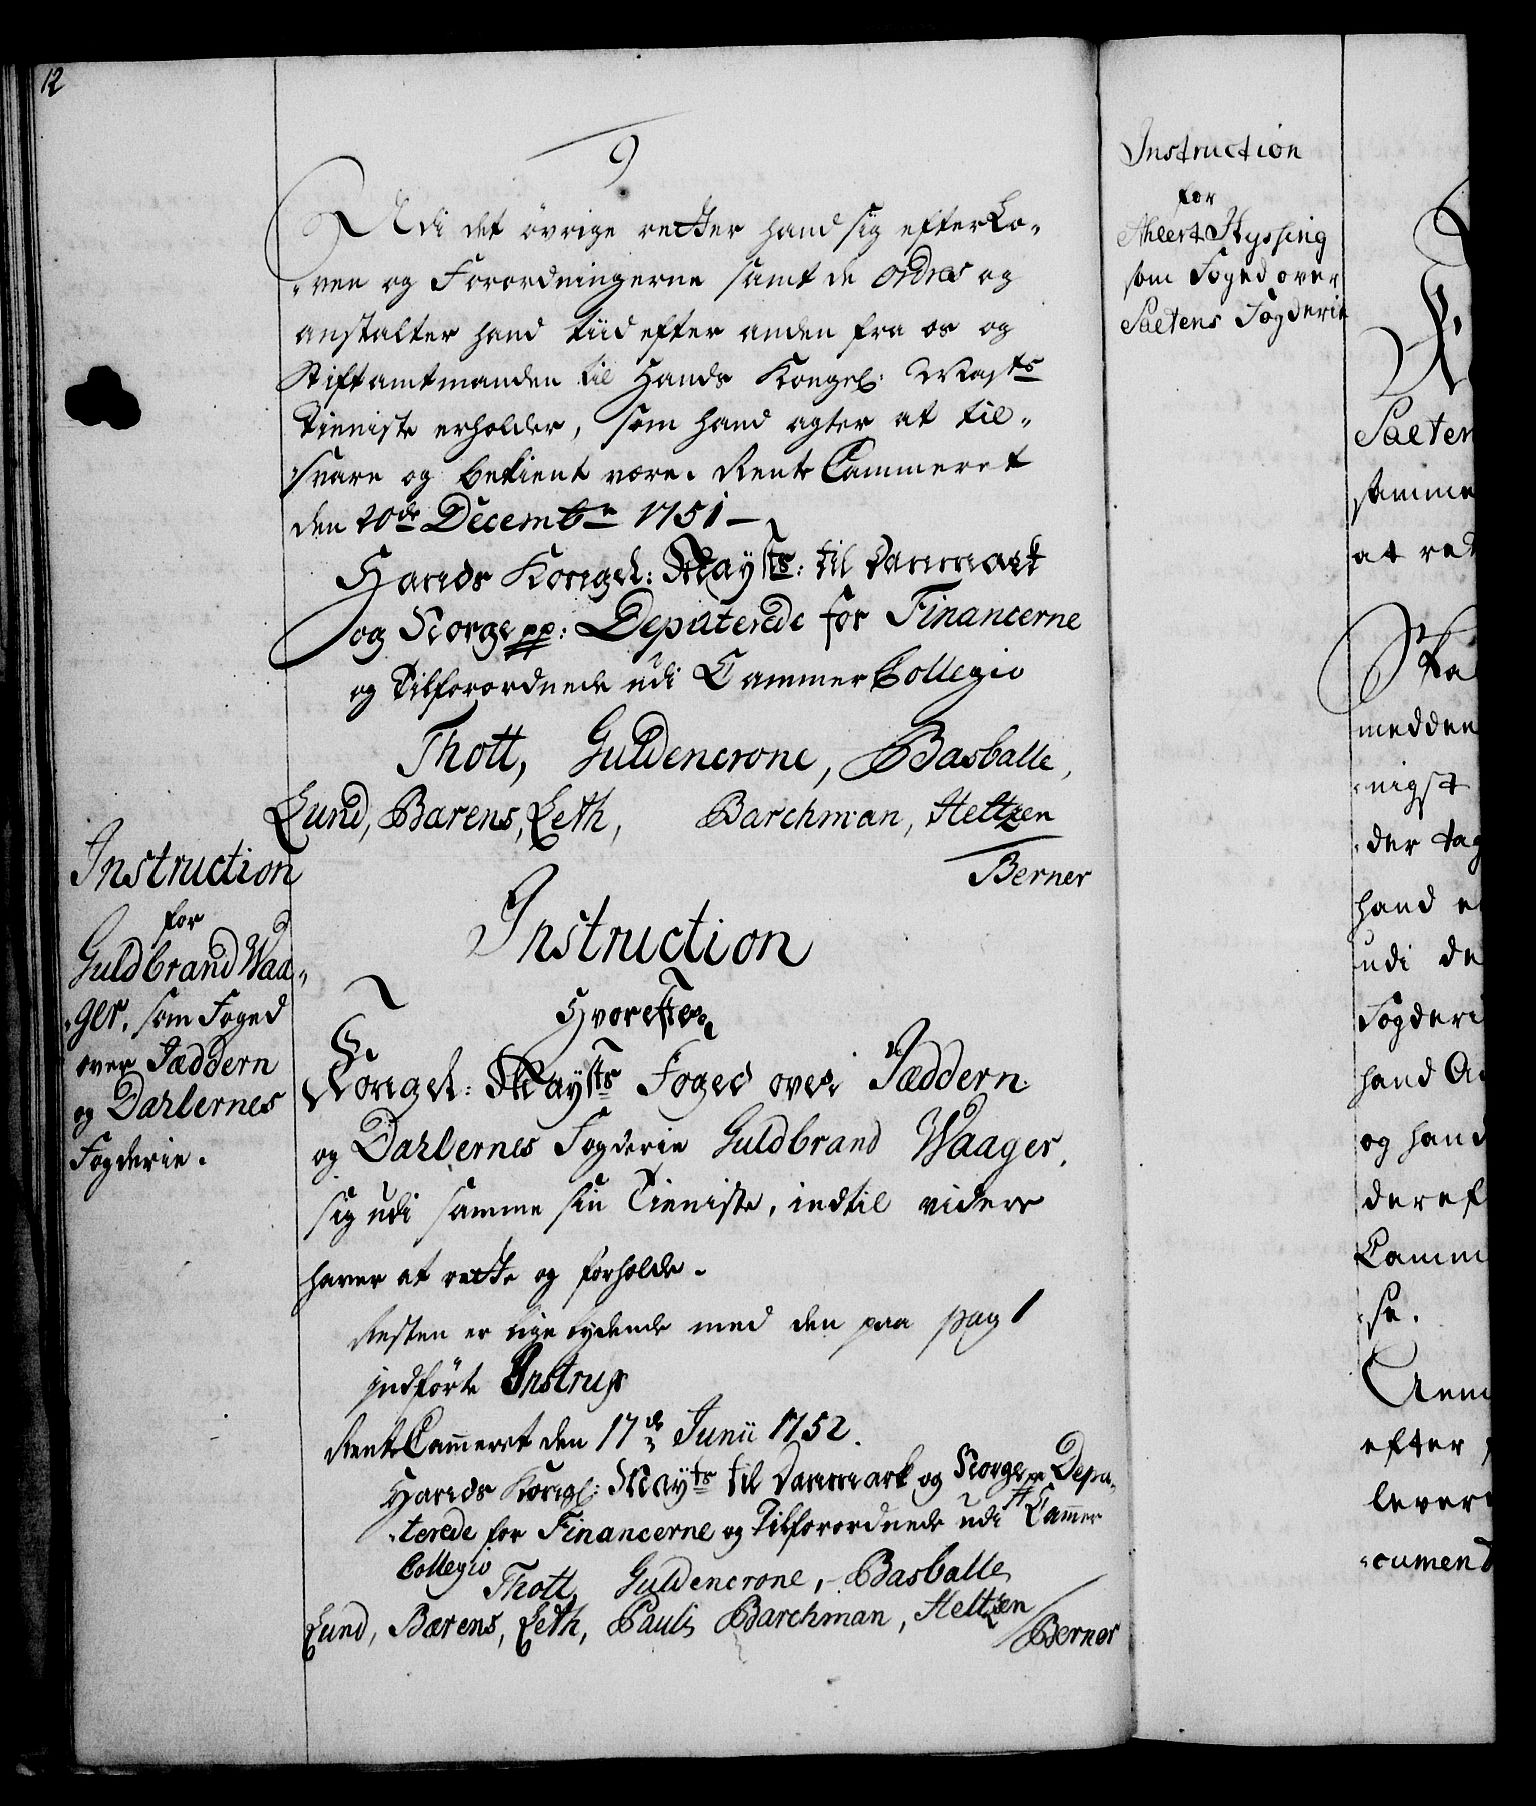 12
9
Udi det övrige retter hand sig efter Lo-
-ven og Forordningerne samt de Ordres og
anstalter hand tiid efter anden fra os og
Stiftamtmanden til Hands Kongel: Mayts
Tieniste erholder, som hand agter at til-
svare og bekient være. Rente Cammeret
den 20de Decembr 1751 –
Hands Kongel: Mayts: til Danmark
og Norge pp: Deputerede for Financerne
og Tilforordnede udi Cammer Collegio
Thott, Guldencrone, Basballe,
Lund, Barens, Leth, Barchman, Heltzen
Berner
Instruction
for
Guldbrand Waa-
-ger, som Foged
over Jæddern
og Dahlernes
Fogderie.
Instruction
Hvorefter
Kongel: Mayts Foged over Jæddern
og Dahlernes Fogderie Guldbrand Waager,
sig udi samme sin Tieniste, indtil videre
haver at rette og forholde.
Resten er lige lydende med den paa pag 1
indförte Instrux
Rente Cammeret den 17de Junii 1752.
Hands Kongl: Mayts til Danmark og Norge pp Depu-
-terede for Financerne og Tilforordnede udi Cammer
Collegio
Thott, Guldencrone, Basballe,
Lund, Bærens, Leth, Pauli, Barchman, Heltzen
Berner
Instruction
for
Ahlert Hyssing
som Foged over
Saltens Fogderie
Salten
samme
at ret
Ska
medden
-nigst
der tag
hand e
udi de
Fogderi
hand A
og hand
deref
Camm
se.
efter
lever
-cument